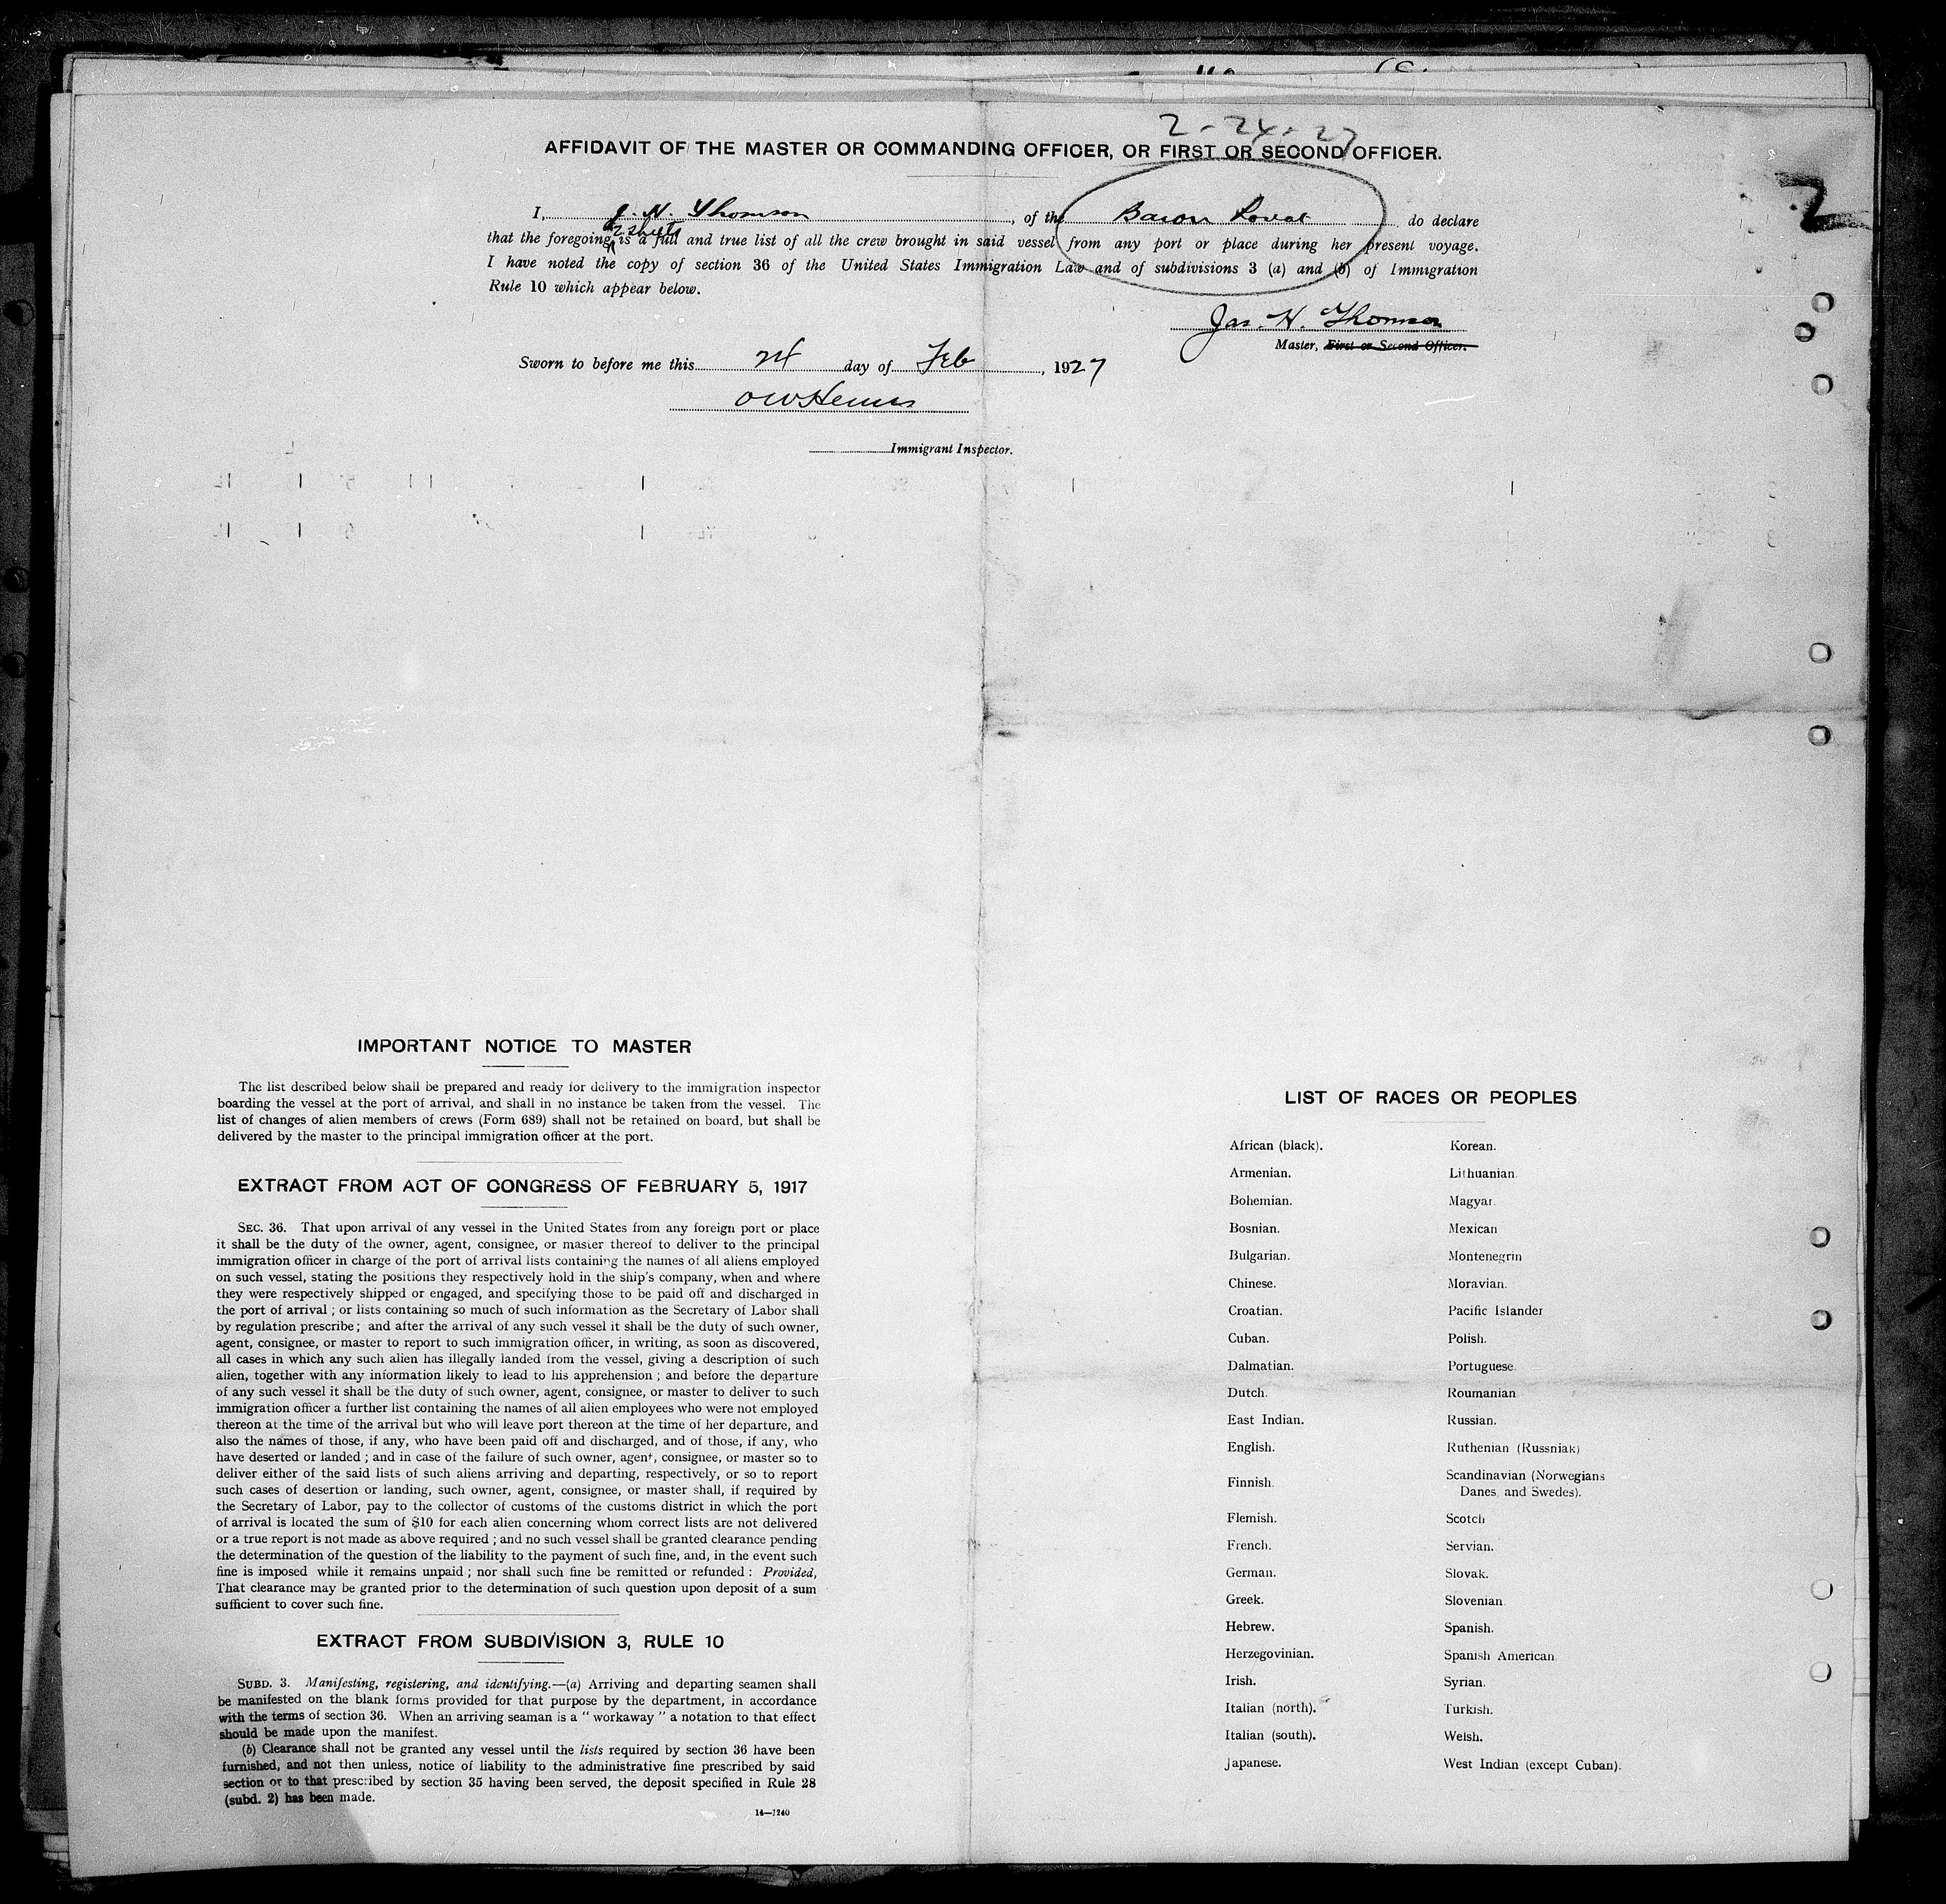 2-24-27
AFFIDAVIT OF THE MASTER OR COMMANDING OFFICER, OR FIRST OR SECOND OFFICER.
2
I, J. H. Thomson, of the Baron Lovat do declare
2 sheets
that the foregoing is a full and true list of all the crew brought in said vessel from any port or place during her present voyage.
I have noted the copy of section 36 of the United States Immigration Law and of subdivisions 3 (a) and (b) of Immigration
Rule 10 which appear below.
Jas. H. Thomson
Master, First or Second Officer.
Sworn to before me this 24 day of Feb, 1927
Immigrant Inspector.
IMPORTANT NOTICE TO MASTER
The list described below shall be prepared and ready for delivery to the immigration inspector
boarding the vessel at the port of arrival, and shall in no instance be taken from the vessel. The
list of changes of alien members of crews (Form 689) shall not be retained on board, but shall be
delivered by the master to the principal immigration officer at the port.
EXTRACT FROM ACT OF CONGRESS OF FEBRUARY 5, 1917
SEC. 36. That upon arrival of any vessel in the United States from any foreign port or place
it shall be the duty of the owner, agent, consignee, or master thereof to deliver to the principal
immigration officer in charge of the port of arrival lists containing the names of all aliens employed
on such vessel, stating the positions they respectively hold in the ship's company, when and where
they were respectively shipped or engaged, and specifying those to be paid off and discharged in
the port of arrival; or lists containing so much of such information as the Secretary of Labor shall
by regulation prescribe; and after the arrival of any such vessel it shall be the duty of such owner,
agent, consignee, or master to report to such immigration officer, in writing, as soon as discovered,
all cases in which any such alien has illegally landed from the vessel, giving a description of such
alien, together with any information likely to lead to his apprehension; and before the departure
of any such vessel it shall be the duty of such owner, agent, consignee, or master to deliver to such
immigration officer a further list containing the names of all alien employees who were not employed
thereon at the time of the arrival but who will leave port thereon at the time of her departure, and
also the names of those, if any, who have been paid off and discharged, and of those, if any, who
have deserted or landed; and in case of the failure of such owner, agent, consignee, or master so to
deliver either of the said lists of such aliens arriving and departing, respectively, or so to report
such cases of desertion or landing, such owner, agent, consignee, or master shall, if required by
the Secretary of Labor, pay to the collector of customs of the customs district in which the port
of arrival is located the sum of $10 for each alien concerning whom correct lists are not delivered
or a true report is not made as above required; and no such vessel shall be granted clearance pending
the determination of the question of the liability to the payment of such fine, and, in the event such
fine is imposed while it remains unpaid; nor shall such fine be remitted or refunded: Provided,
That clearance may be granted prior to the determination of such question upon deposit of a sum
sufficient to cover such fine.
EXTRACT FROM SUBDIVISION 3, RULE 10
SUBD. 3. Manifesting, registering, and identifying.—(a) Arriving and departing seamen shall
be manifested on the blank forms provided for that purpose by the department, in accordance
with the terms of section 36. When an arriving seaman is a "workaway" a notation to that effect
should be made upon the manifest.
(b) Clearance shall not be granted any vessel until the lists required by section 36 have been
furnished, and not then unless, notice of liability to the administrative fine prescribed by said
section or to that prescribed by section 35 having been served, the deposit specified in Rule 28
(subd. 2) has been made.
14—1240
LIST OF RACES OR PEOPLES
African (black).
Armenian.
Bohemian.
Bosnian.
Bulgarian.
Chinese.
Croatian.
Cuban.
Dalmatian.
Dutch.
East Indian.
English.
Finnish.
Flemish.
French.
German.
Greek.
Hebrew.
Herzegovinian.
Irish.
Italian (north).
Italian (south).
Japanese.
Korean.
Lithuanian.
Magyar.
Mexican
Montenegrin
Moravian.
Pacific Islander
Polish.
Portuguese.
Roumanian
Russian.
Ruthenian (Russniak)
Scandinavian (Norwegians
Danes, and Swedes).
Scotch
Servian.
Slovak.
Slovenian
Spanish.
Spanish American
Syrian.
Turkish.
Welsh.
West Indian (except Cuban).